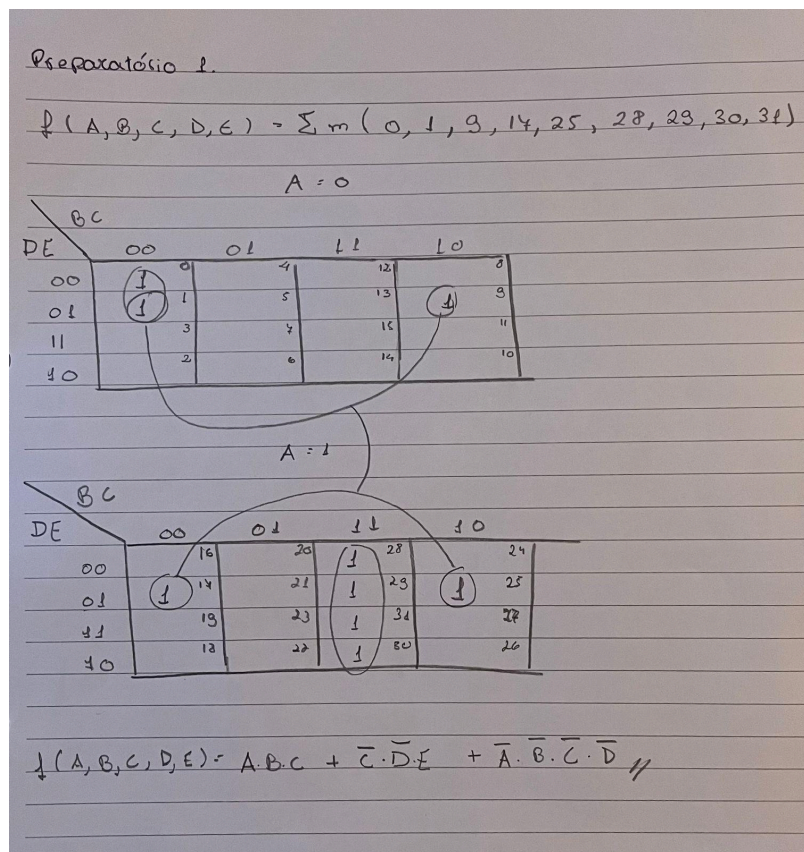 Preparatório 1.
f(A,B,C,D,E) = Σm(0, 1, 9, 17, 25, 28, 29, 30, 31)
A = 0
BC
DE 00 01 11 10
00 1 0 4 12 8
01 1 1 5 13 1 9
11 3 7 15 11
10 2 6 14 10
A = 1
BC
DE 00 01 11 10
00 16 20 1 28 24
01 1 17 21 1 29 1 25
11 19 23 1 31 27
10 18 22 1 30 26
f(A,B,C,D,E) = A.B.C + C̅.D̅.E + A̅.B̅.C̅.D̅ //